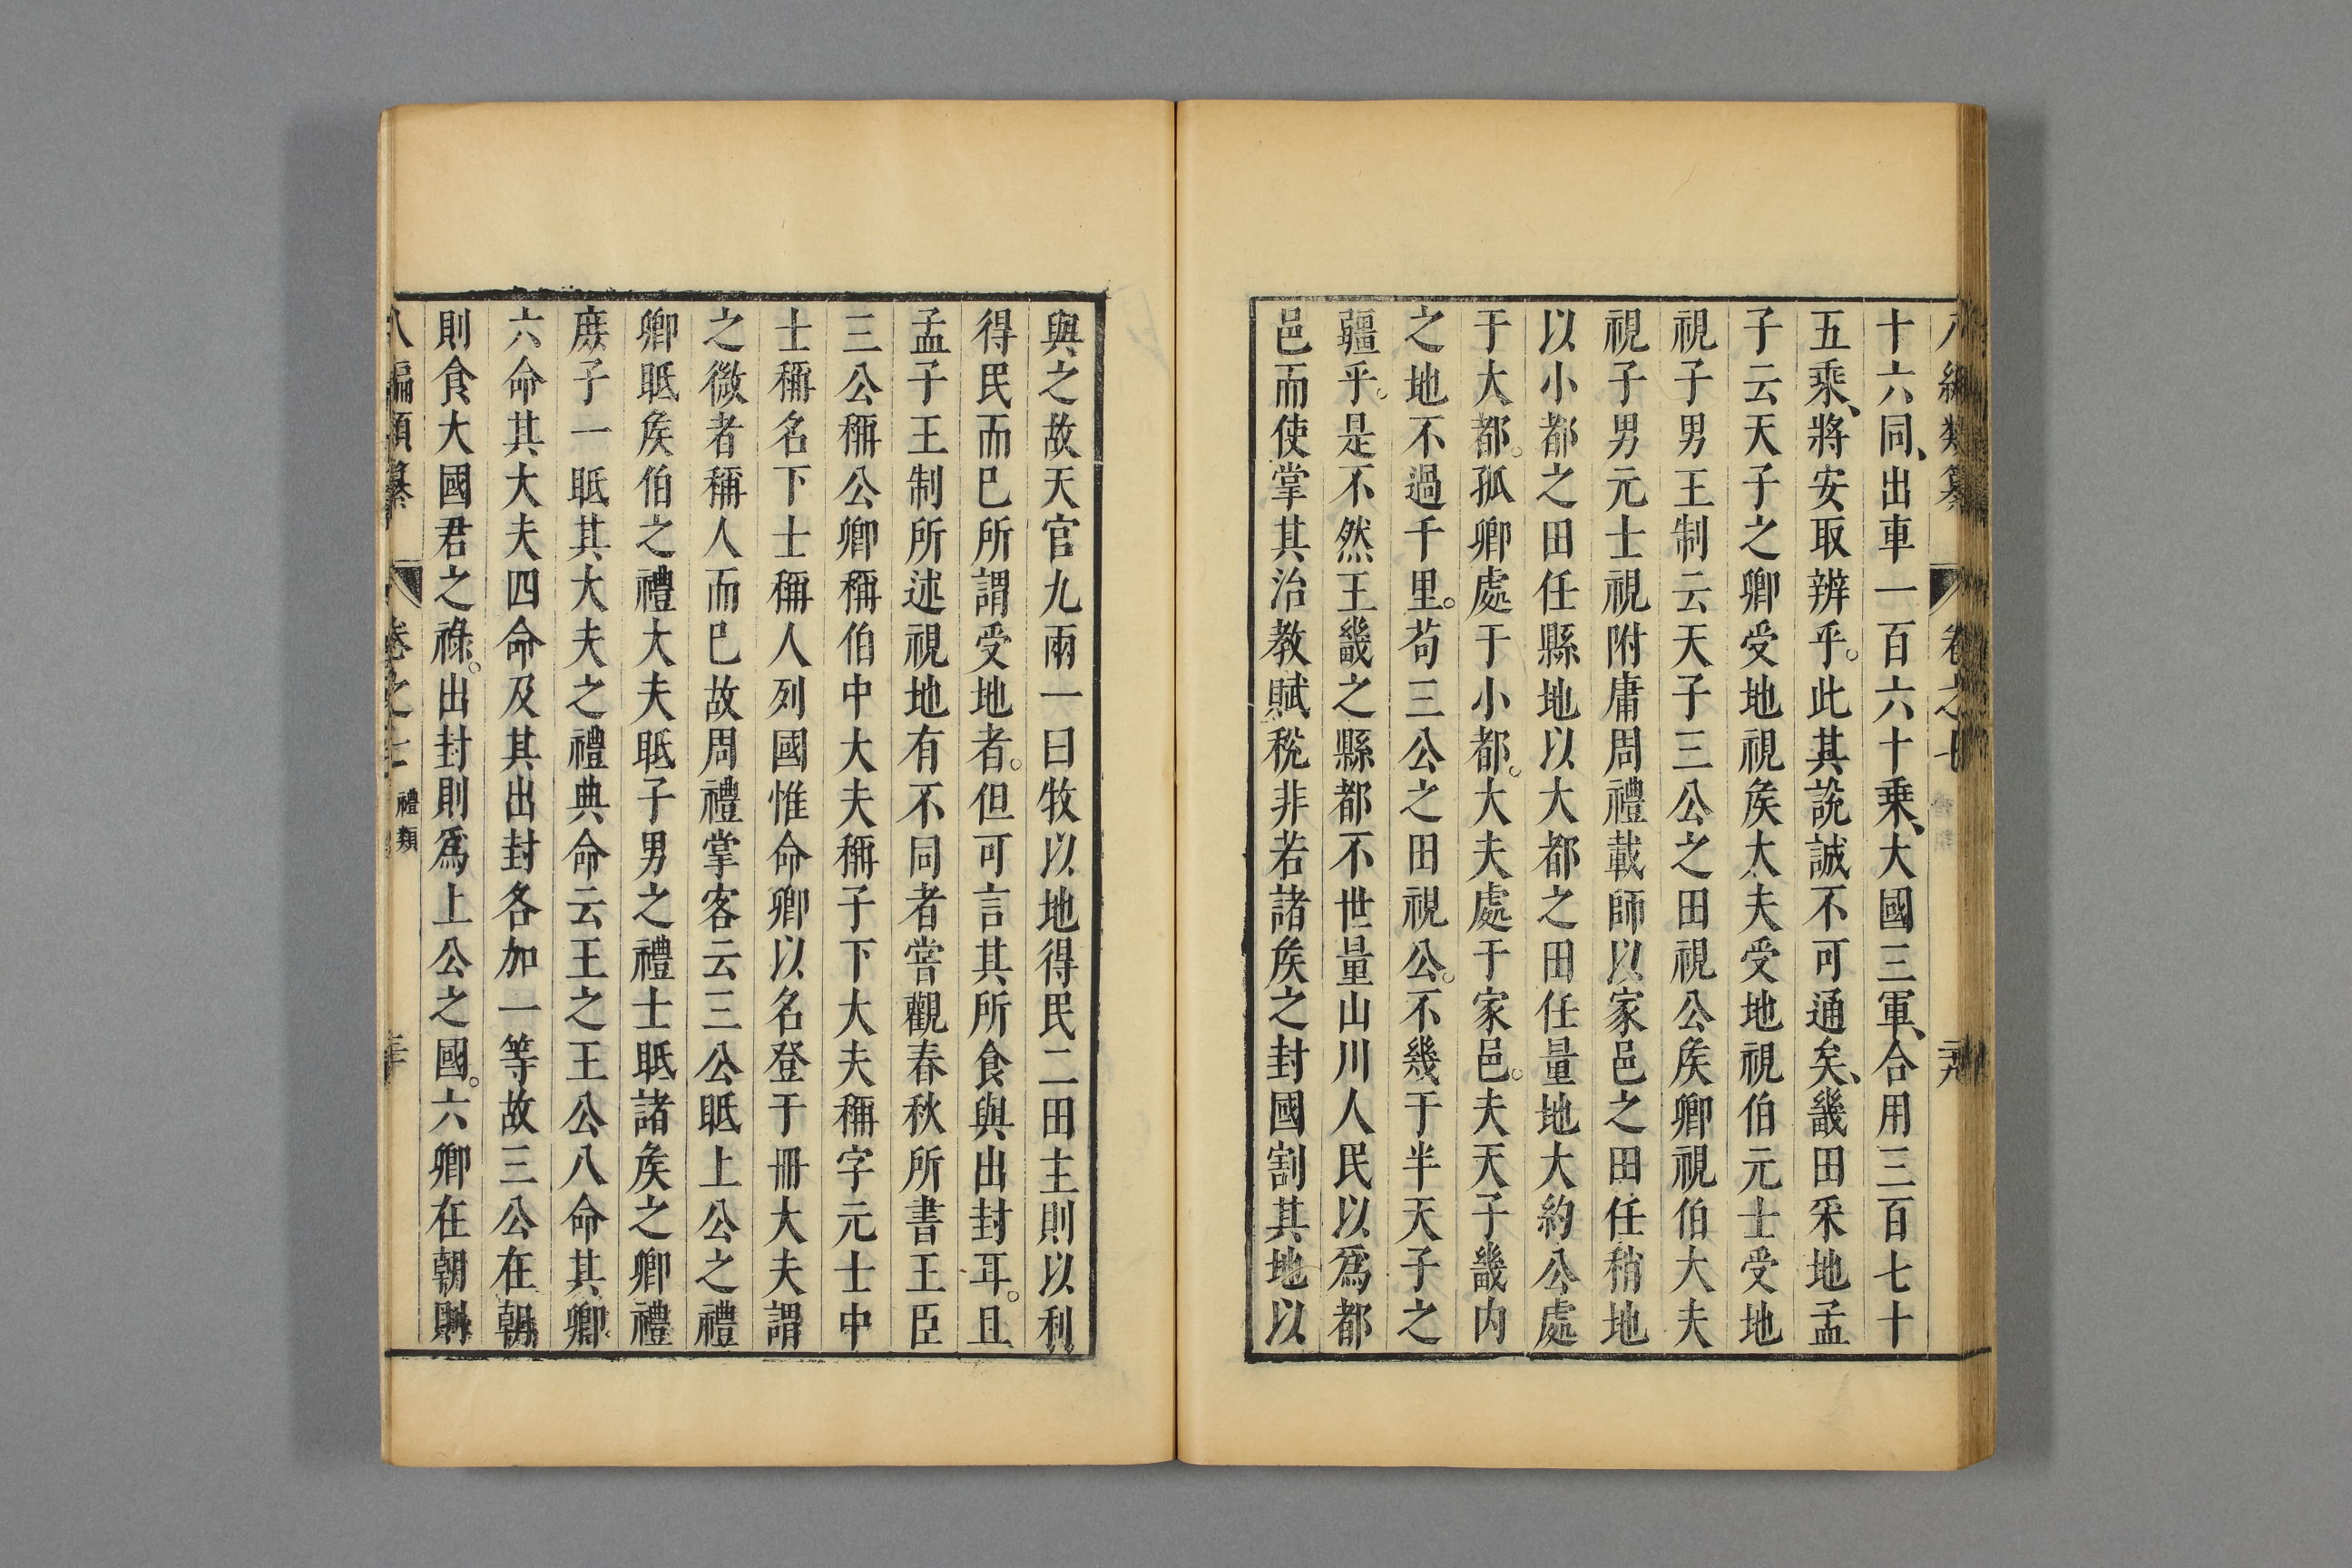 八編類纂 卷之七 禮類
十六同、出車一百六十乗、大國三軍、合用三百七十
五乘、將安取辨乎。此其說誠不可通矣、畿田采地孟
子云天子之卿受地視矦大夫受地視伯元士受地
視子男王制云天子三公之田視公矦卿視伯大夫
視子男元士視附庸周禮載師以家邑之田任稍地
以小都之田任縣地以大都之田任畺地大約公處
于大都。孤卿處于小都。大夫處于家邑。夫天子畿内
之地不過千里。苟三公之田視公。不幾于半天子之
疆乎。是不然王畿之縣都不世量山川人民以爲都
邑而使掌其治教賦稅非若諸矦之封國割其地以
與之故天官九兩一曰牧以地得民二田主則以利
得民而巳所謂受地者。但可言其所食與出封耳。且
孟子王制所述視地有不同者甞觀春秋所書王臣
三公稱公卿稱伯中大夫稱子下大夫稱字元士中
士稱名下士稱人列國惟命卿以名登于冊大夫謂
之微者稱人而巳故周禮掌客云三公眡上公之禮
卿眡矦伯之禮大夫眡子男之禮士眡諸矦之卿禮
庶子一眡其大夫之禮典命云王之王公八命其卿
六命其大夫四命及其出封各加一等故三公在朝
則食大國君之祿。出封則爲上公之國。六卿在朝則
八編類纂 卷之七 禮類 三十